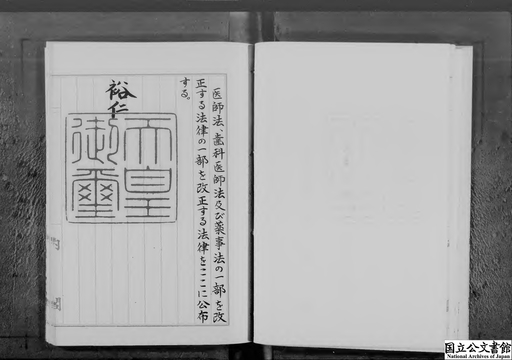 医師法、歯科医師法及び薬事法の一部を改
正する法律の一部を改正する法律をここに公布
する。
裕仁
天皇
御璽
国立公文書館
National Archives of Japan